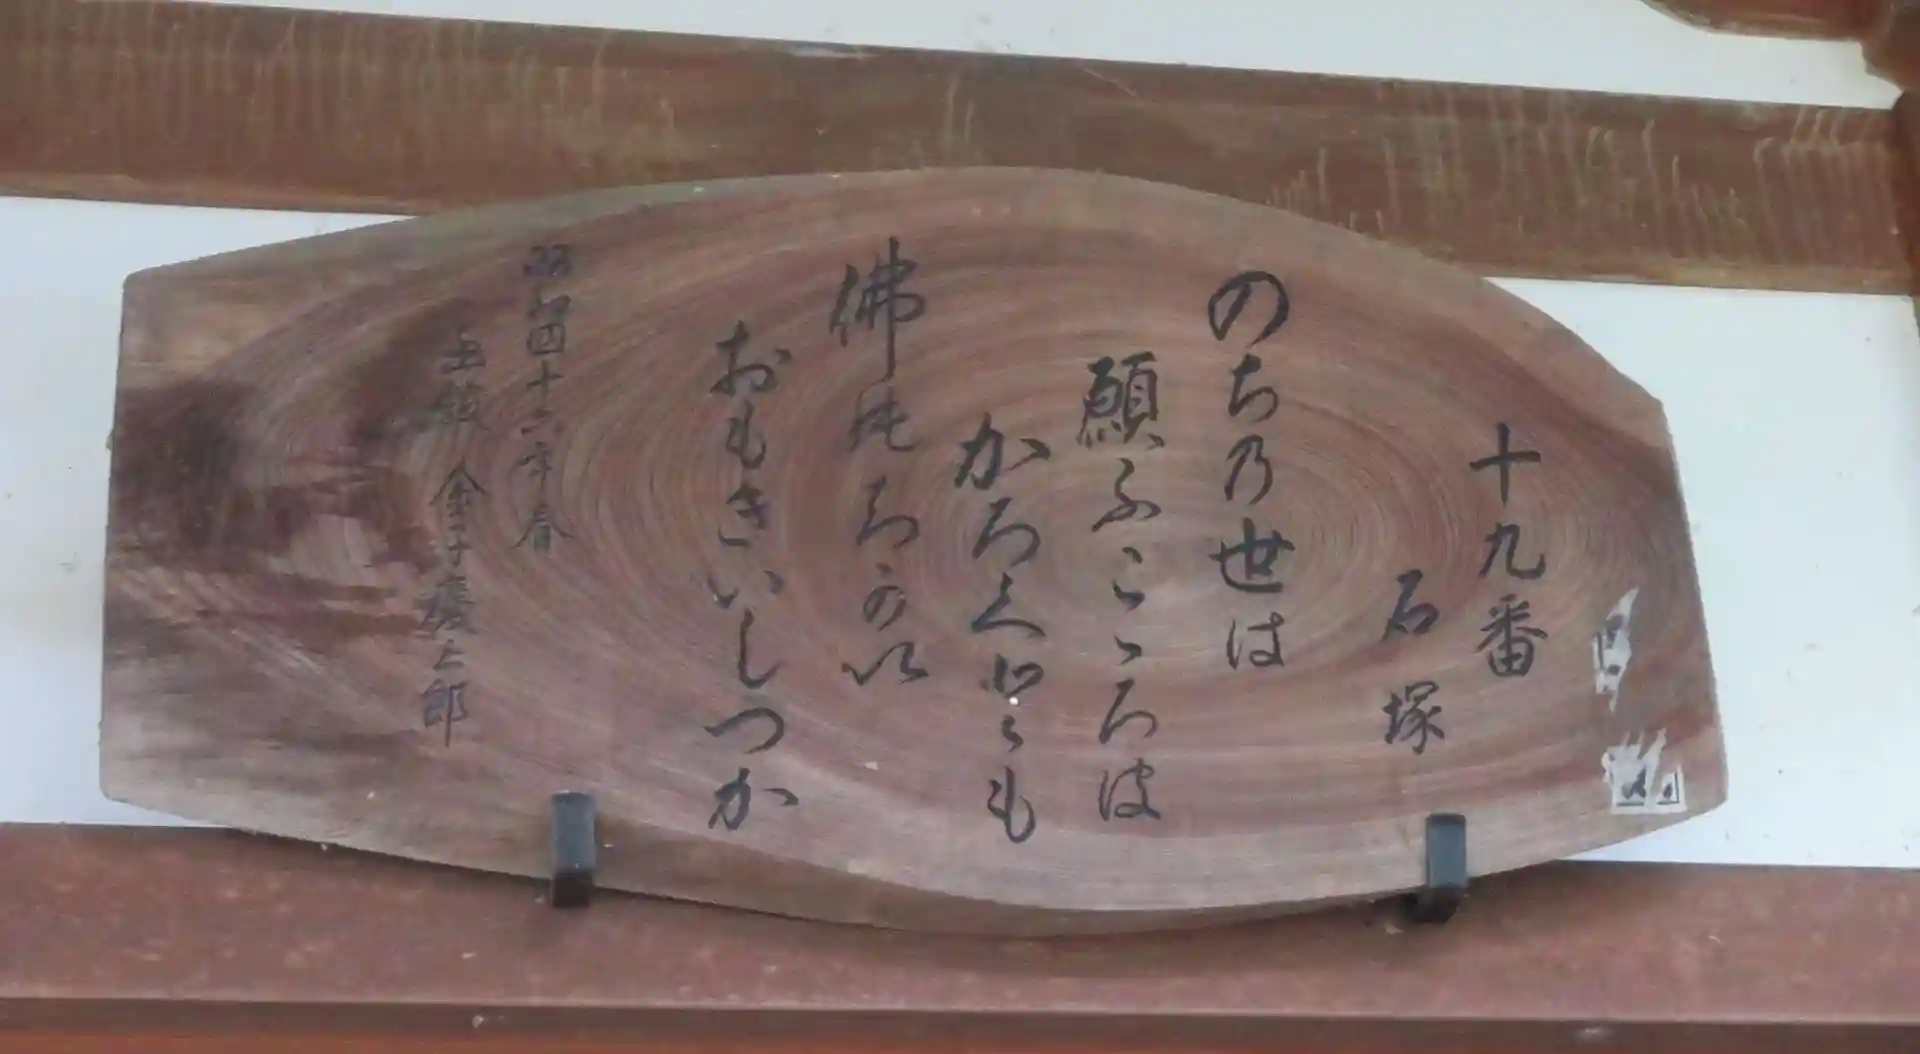 十九番
石塚
のち乃世は
願ふこゝろは
かろくとも
佛のちかい
おもきいしつか
昭和四十六年春
玉敷 金子慶三郎